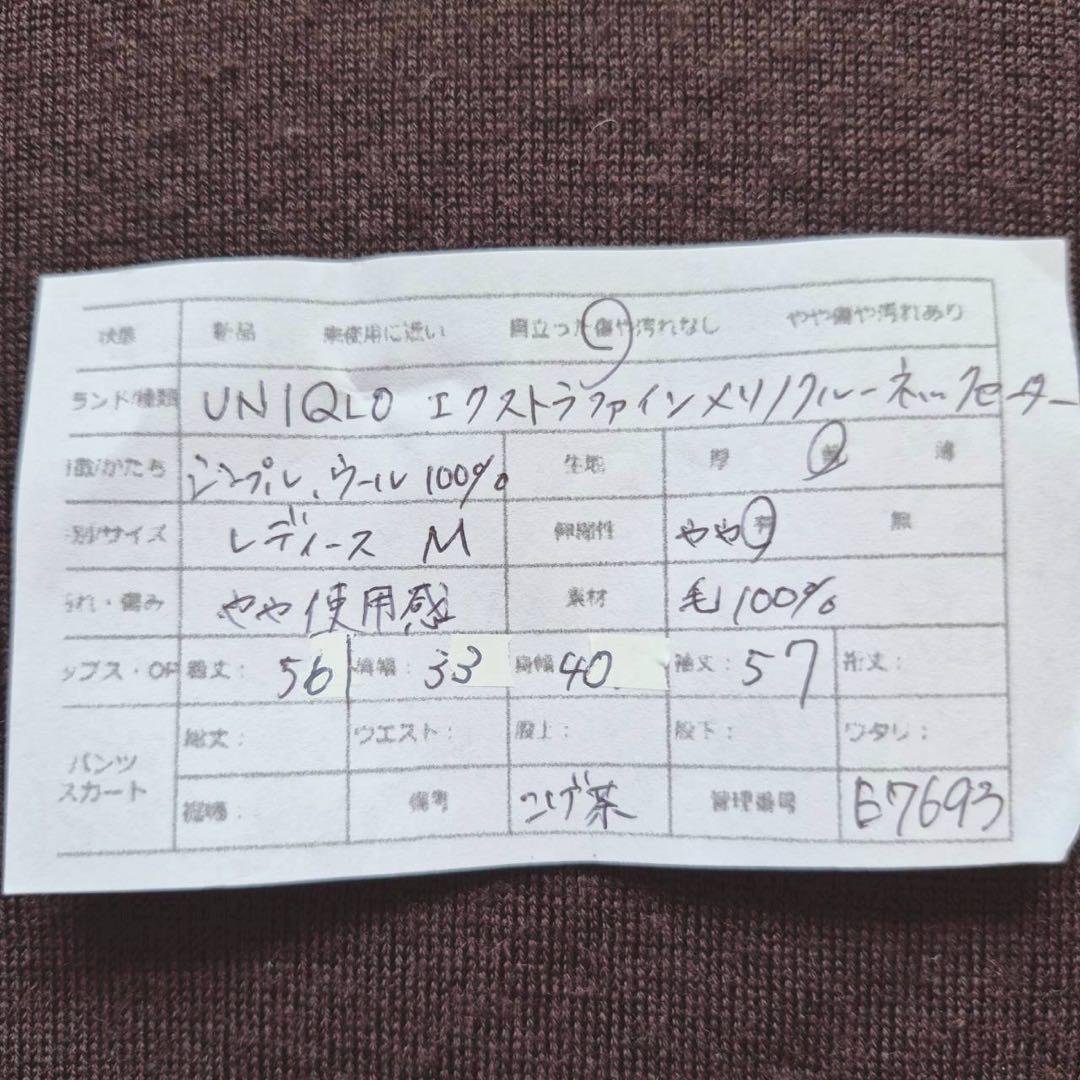 状態 新品 未使用に近い 目立った傷や汚れなし やや傷や汚れあり
ランド/種類 UNIQLO エクストラファインメリノクルーネックセーター
徴/かたち シンプル、ウール100% 生地 厚 普 薄
別/サイズ レディース M 伸縮性 やや有 無
れ・傷み やや使用感 素材 毛100%
ップス・OP 着丈: 56 肩幅: 33 身幅 40 袖丈: 57 裄丈:
パンツ スカート
総丈: ウエスト: 股上: 股下: ワタリ:
裾幅: 備考 こげ茶 管理番号 E7693